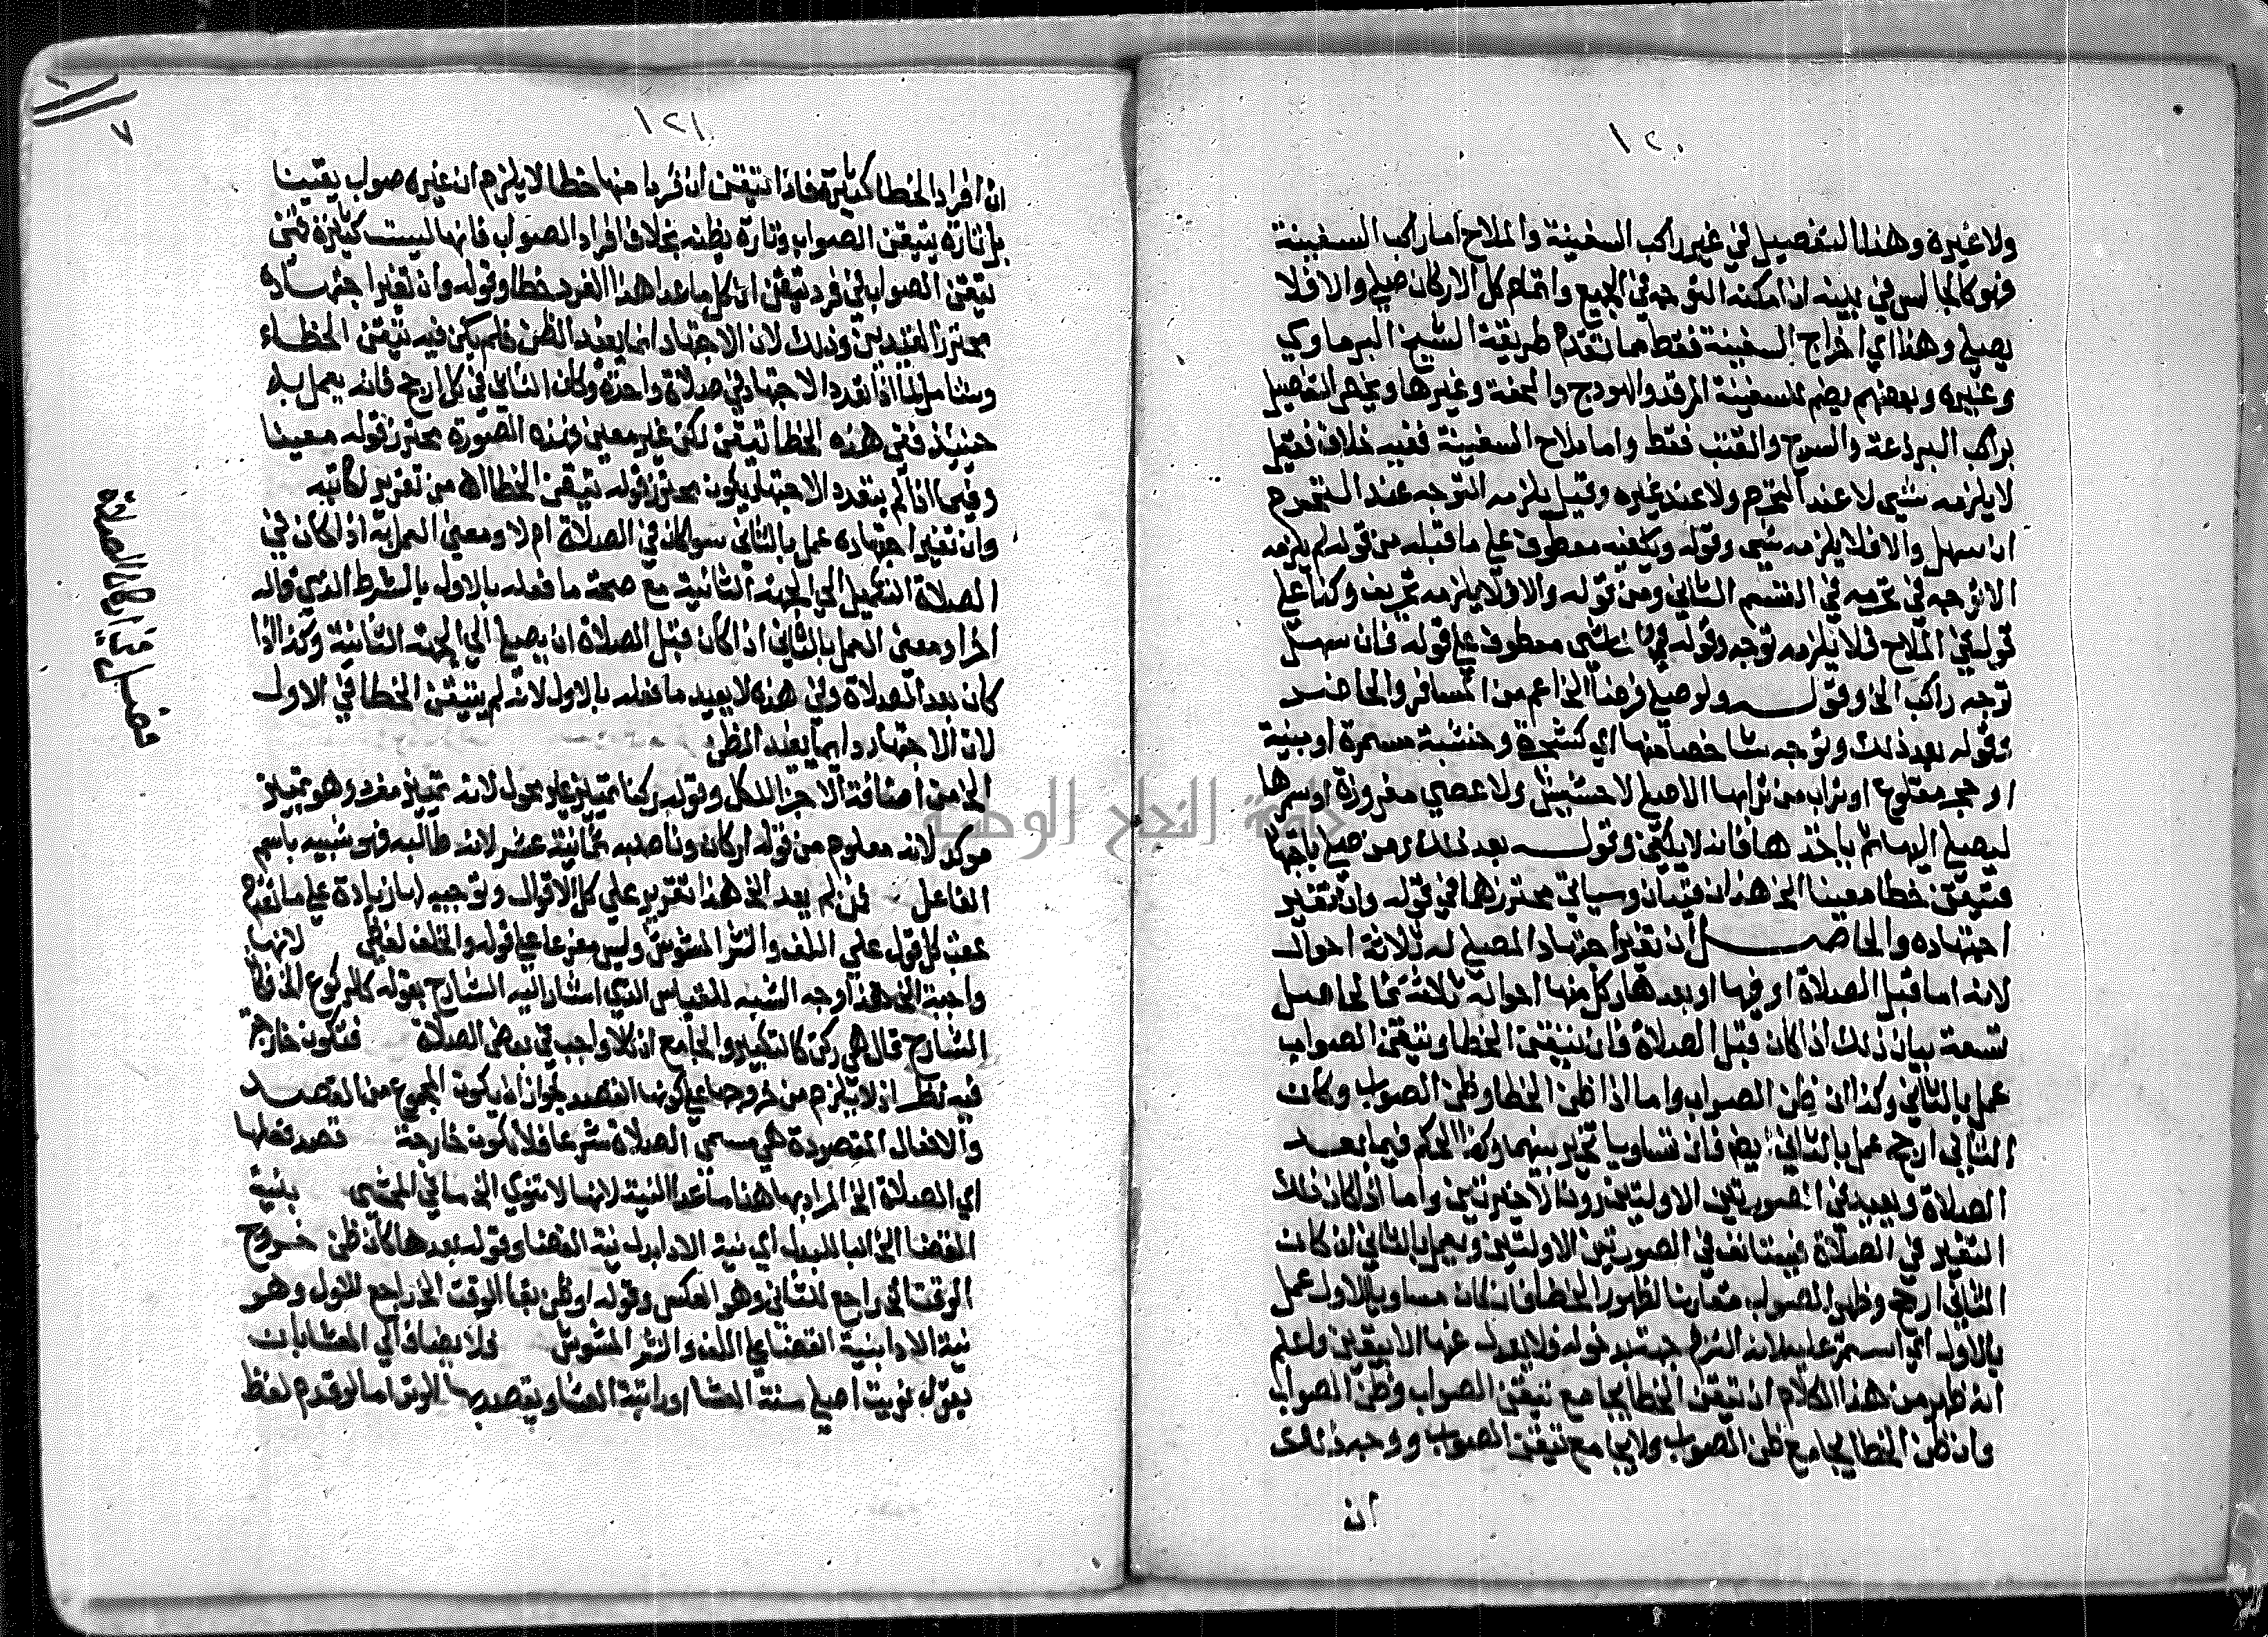 ١٢٠
ولا غيره وهذا التفصيل في غير راكب السفينة والملاح اما راكب السفينة
فهو كالجالس في بيته ان امكنه التوجه في الجميع واتمام كل الاركان صلى والا فلا
يصلى وهذا اي اخراج السفينة فقط مما تقدم طريقة الشيخ البرماوي
وغيره وبعضهم يضم للسفينة المرقد والهودج والمحفة وغيرها ويخص التفصيل
براكب البرذعة والسرج والقتب فقط واما ملاح السفينة ففيه خلاف فقيل
لا يلزمه شي لا عند التحرم ولا عند غيره وقيل يلزمه التوجه عند التحرم
ان سهل والا فلا يلزمه شي وقوله ويكفيه معطوف على ما قبله من قوله لم يلزمه
الا توجه في تحرمه في القسم الثاني ومن قوله والا فلا يلزمه
قوله في الملاح فلا يلزمه توجه وقوله معطوف على قوله فان سهل
توجه راكب الخ وقوله ولو صلى فرضا الخ اعم من المسافر والحاضر
وقوله بعد ذلك وتوجه شاخصا منها اي كشجرة وخشبة مسمرة او مبنية
او حجر مقلوع او تراب من ترابها الا صلى لا حشيش ولا عصى مغروزة
ليصلى اليها ثم ياخذها فانه لا يكفي وقوله بعد ذلك ومن صلى باجتهاد
فتيقن خطأ معينا الخ هذان قيدان وسياتي محترزهما في قوله وان تغير
اجتهاده والحاصل ان تغير اجتهاد المصلى له ثلاثة احوال
لانه اما قبل الصلاة او فيها او بعدها وكل منها احواله ثلاثة فالحاصل
تسعة بيان ذلك اذا كان قبل الصلاة فان تيقن الخطا وتيقن الصواب
عمل بالثاني وكذا ان ظن الصواب واما اذا ظن الخطا وظن الصواب وكان
الثاني ارجح عمل بالثاني ايضا فان تساويا تخير بينهما وكذا الحكم فيما بعد
الصلاة ويعيد في الصورتين الاولتين دون الاخيرتين واما اذا كان
التغير في الصلاة فيستانف في الصورتين الاولتين ويعمل بالثاني ان كان
الثاني ارجح وظهر الصواب مقارنا لظهور الخطا فان كان مساويا للاول عمل
بالاول اي استمر عليه لانه التزم جهة بدخوله فلا يعدل عنها الا بيقين واعلم
انه ظهر من هذا الكلام ان تيقن الخطا يجامع تيقن الصواب وظن الصواب
وان ظن الخطا يجامع ظن الصواب ولا يجامع تيقن الصواب ووجه ذلك
ان
١٢١
ان افراد الخطا كثيرة فاذا تيقن ان فردا منها خطا لا يلزم ان غيره صواب يقينا
بل تارة يتيقن الصواب وتارة يظنه بخلاف افراد الصواب فانها ليست كثيرة فمتى
تيقن الصواب في فرد تيقن ان كل ما عدا هذا الفرد خطا وقوله وان تغير اجتهاده
محترز القيدين وذلك لان الاجتهاد انما يفيد الظن فلم يكن فيه تيقن الخطاء
وشامل لما اذا تعدد الاجتهاد في صلاة واحدة وكان الثاني في كل ارجح فانه يعمل به
حينئذ ففي هذه الخطا تيقن لكن غير معين فهذه الصورة محترز قوله معينا
وفيما اذا لم يتعدد الاجتهاد يكون محترز قوله تيقن الخطا اه من تقرير لكاتبه
وان تغير اجتهاده عمل بالثاني سوا كان في الصلاة ام لا ومعنى العمل به اذا كان في
الصلاة التكميل الي الجهة الثانية مع صحة ما فعله بالاول بالشرط الذي قاله
المر ومعنى العمل بالثاني اذا كان قبل الصلاة ان يصلي الي الجهة الثانية وكذا اذا
كان بعد الصلاة وفي هذه لا يعيد ما فعله بالاول لانه لم يتيقن الخطا في الاول
لان الاجتهاد انما يفيد الظن
الخ من اضافة الاجزا للكل وقوله ركنا تمييز غير محول لانه تمييز مفرد وهو تمييز
موكد لانه معلوم من قوله اركان وناصبه ثمانية عشر لانه طالبه فهو شبيه باسم
الفاعل فمن لم يعد الخ هذا تقرير على كل الاقوال وتوجيه لها زيادة على ما تقدم
عقب كل قول على اللف والنشر المشوش وليس مفرعا على قوله والخلف لفظي لانها
واجبة الخ هذا وجه الشبه للقياس الذي اشار اليه الشارح بقوله كالركوع الخ
الشارح قال هي ركن كالتكبير والجامع ان كلا واجب في بعض الصلاة فتكون خارجة
فيه نظر اذ لا يلزم من خروجها كونها القصد لجواز ان يكون المجموع من القصد
والافعال المقصودة هي مسمى الصلاة شرعا فلا يكون خارجة قصد فعلها
اي الصلاة الخ المراد بها هنا ما عدا النية لانها لا تنوي الخ ما في المحشى بنية
القضا الخ البا للبدل اي نية الادا بدل نية القضا وقوله بعدها كان ظن خروج
الوقت الخ راجع للثاني وهو العكس وقوله او ظن بقا الوقت الخ راجع للاول وهو
نية الادا بنية القضا على اللف والنشر المشوش فلا يضاف الي العشا بان
يقول نويت اصلي سنة العشا او راتبة العشا ويقصد بها الوتر اما لو قدم لفظ
فصل في اركان الصلاة